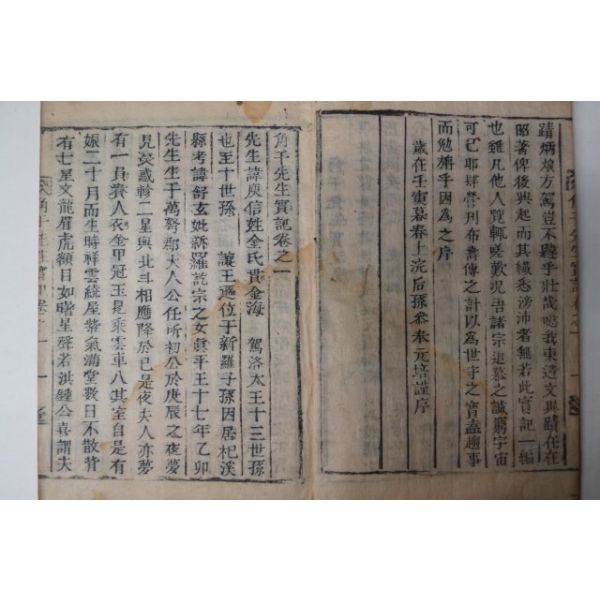 蹟炳烺方駕並不韙乎壯哉噫我東遺文與蹟在在
昭著俾後興起而其纎悉滂沛者無若此實記一編
也雖凡他人覽輒嗟歎況吾諸宗追慕之誠窮宇宙
可已耶肆營刊布壽傳之計以為世守之寶盍趨事
而勉旃乎因為之序
歲在壬寅暮春上浣后孫參奉元培謹序
角干先生實記卷之一
先生諱庾信姓金氏貫金海 駕洛太王十三世孫
也王十世孫 讓王遜位于新羅子孫因居杞溪
縣考諱舒玄妣新羅訖宗之女眞平王十七年乙卯
先生生于萬弩郡大人公任所初公於庚辰之夜夢
見熒惑鎭二星與北斗相應降於己是夜夫人亦夢
有一員貴人衣金甲冠玉冕乘雲車入其室自是有
娠二十月而生時祥雲繞屋紫氣滿堂數日不散背
有七星文龍眉虎額目如曙星聲若洪鍾公喜謂夫